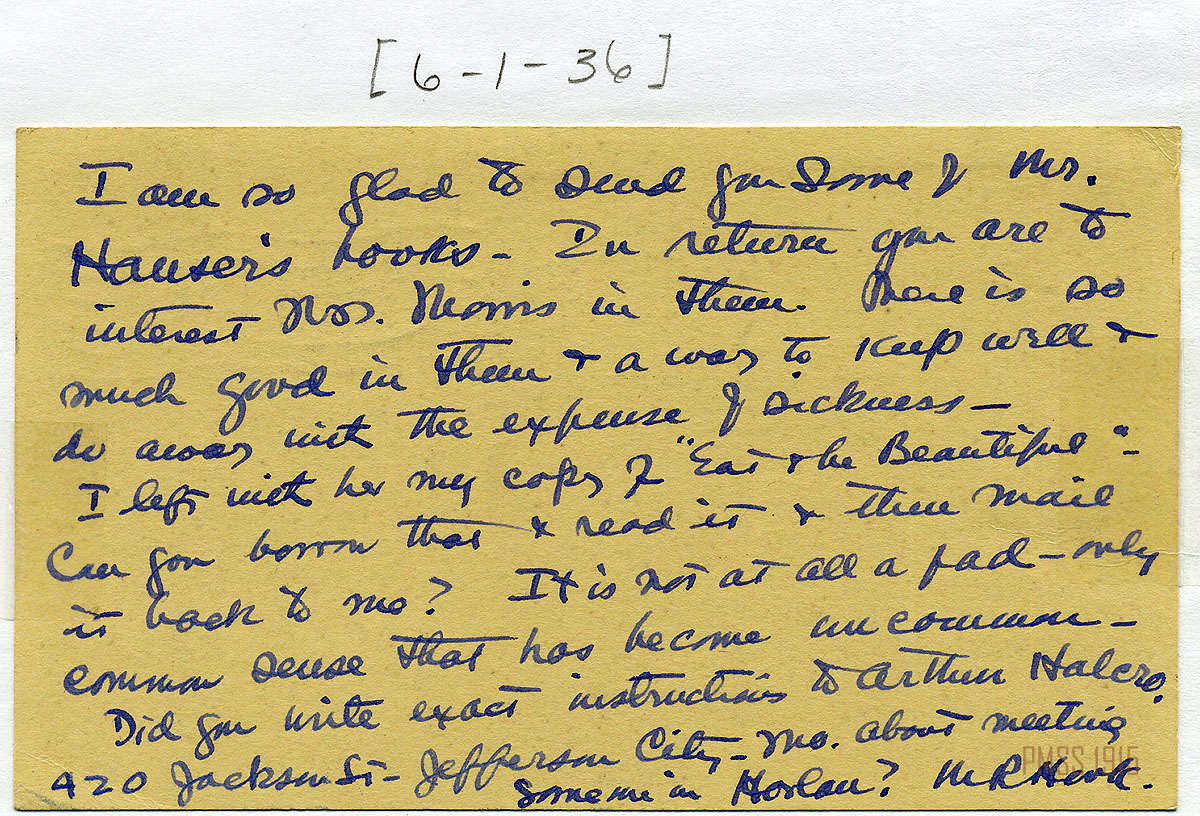 [6-1-36]
I am so glad to send you some of Mr.
Hauser's books - In return you are to
interest Mrs. Morris in them. There is so
much good in them & a way to keep well &
do away with the expense of sickness -
I left with her my copy of "Eat & be Beautiful" -
Can you borrow that & read it & then mail
it back to me? It is not at all a fad - only
common sense that has become uncommon -
Did you write exact instructions to Arthur Halcro,
420 Jackson St - Jefferson City - Mo. about meeting
someone in Harlan? M R
PMSS 1915